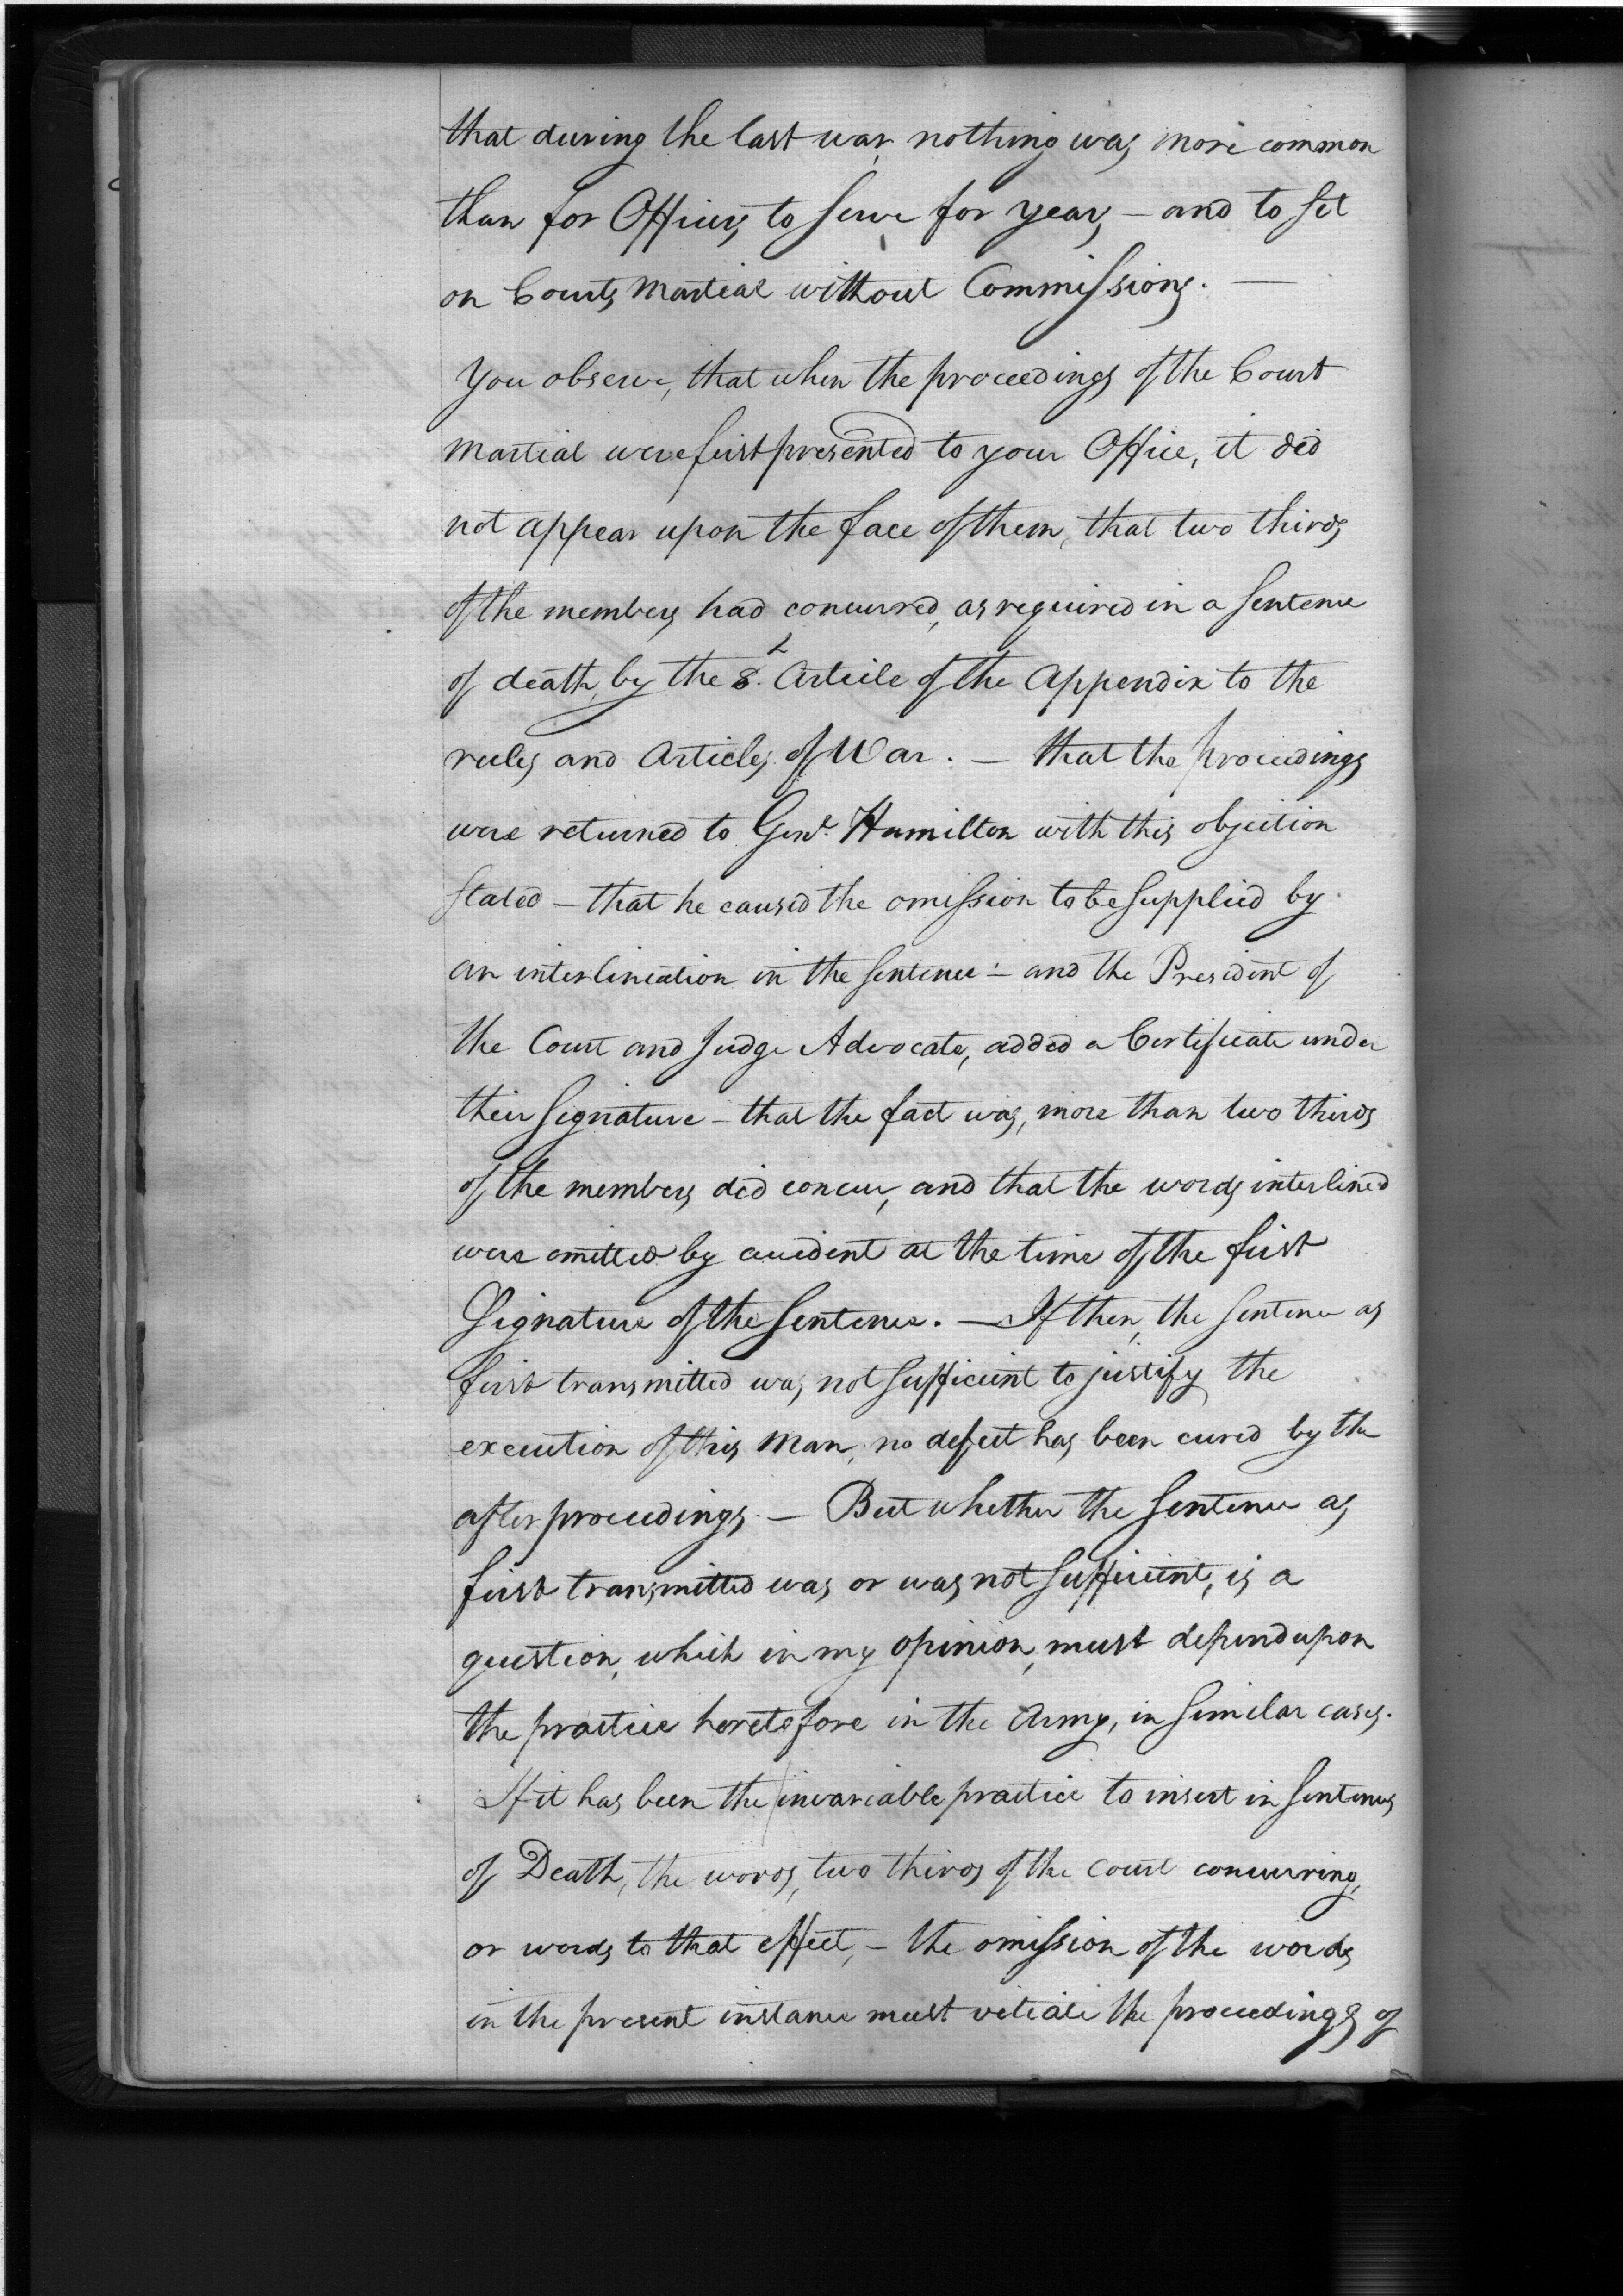 that during the last war nothing was more common
than for Officers to serve for years – and to sit
on Courts Martial without Commissions. —
You observe, that when the proceedings of the Court
Martial were first presented to your Office, it did
not appear upon the face of them, that two thirds
of the members had concurred, as required in a Sentence
of death, by the 8.th Article of the Appendix to the
rules and Articles of War. — that the proceedings
were returned to Genl. Hamilton with this objection
stated – that he caused the omission to be supplied by
an interlineation in the sentence – and the President of
the Court and Judge Advocate, added a Certificate under
their signature – that the fact was, more than two thirds
of the members did concur, and that the words interlined
were omitted by accident at the time of the first
Signature of the Sentence. — If then, the sentence as
first transmitted was not sufficient to justify the
execution of this Man, no defect has been cured by the
after proceedings. — But whether the Sentence as
first transmitted was or was not sufficient, is a
question, which in my opinion, must depend upon
the practice heretofore in the Army, in similar cases.
If it has been the invariable practice to insert in Sentences
of Death, the words, two thirds of the Court concurring,
or words to that effect, – the omission of the words
in the present instance must vitiate the proceedings of